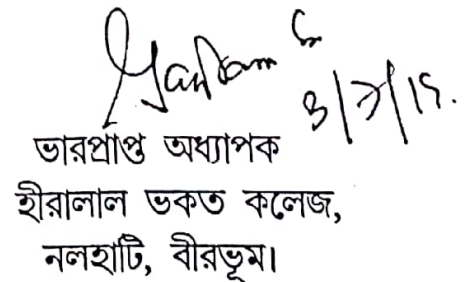 ভারপ্রাপ্ত অধ্যাপক
হীরালাল ভকত কলেজ,
নলহাটি, বীরভূম।